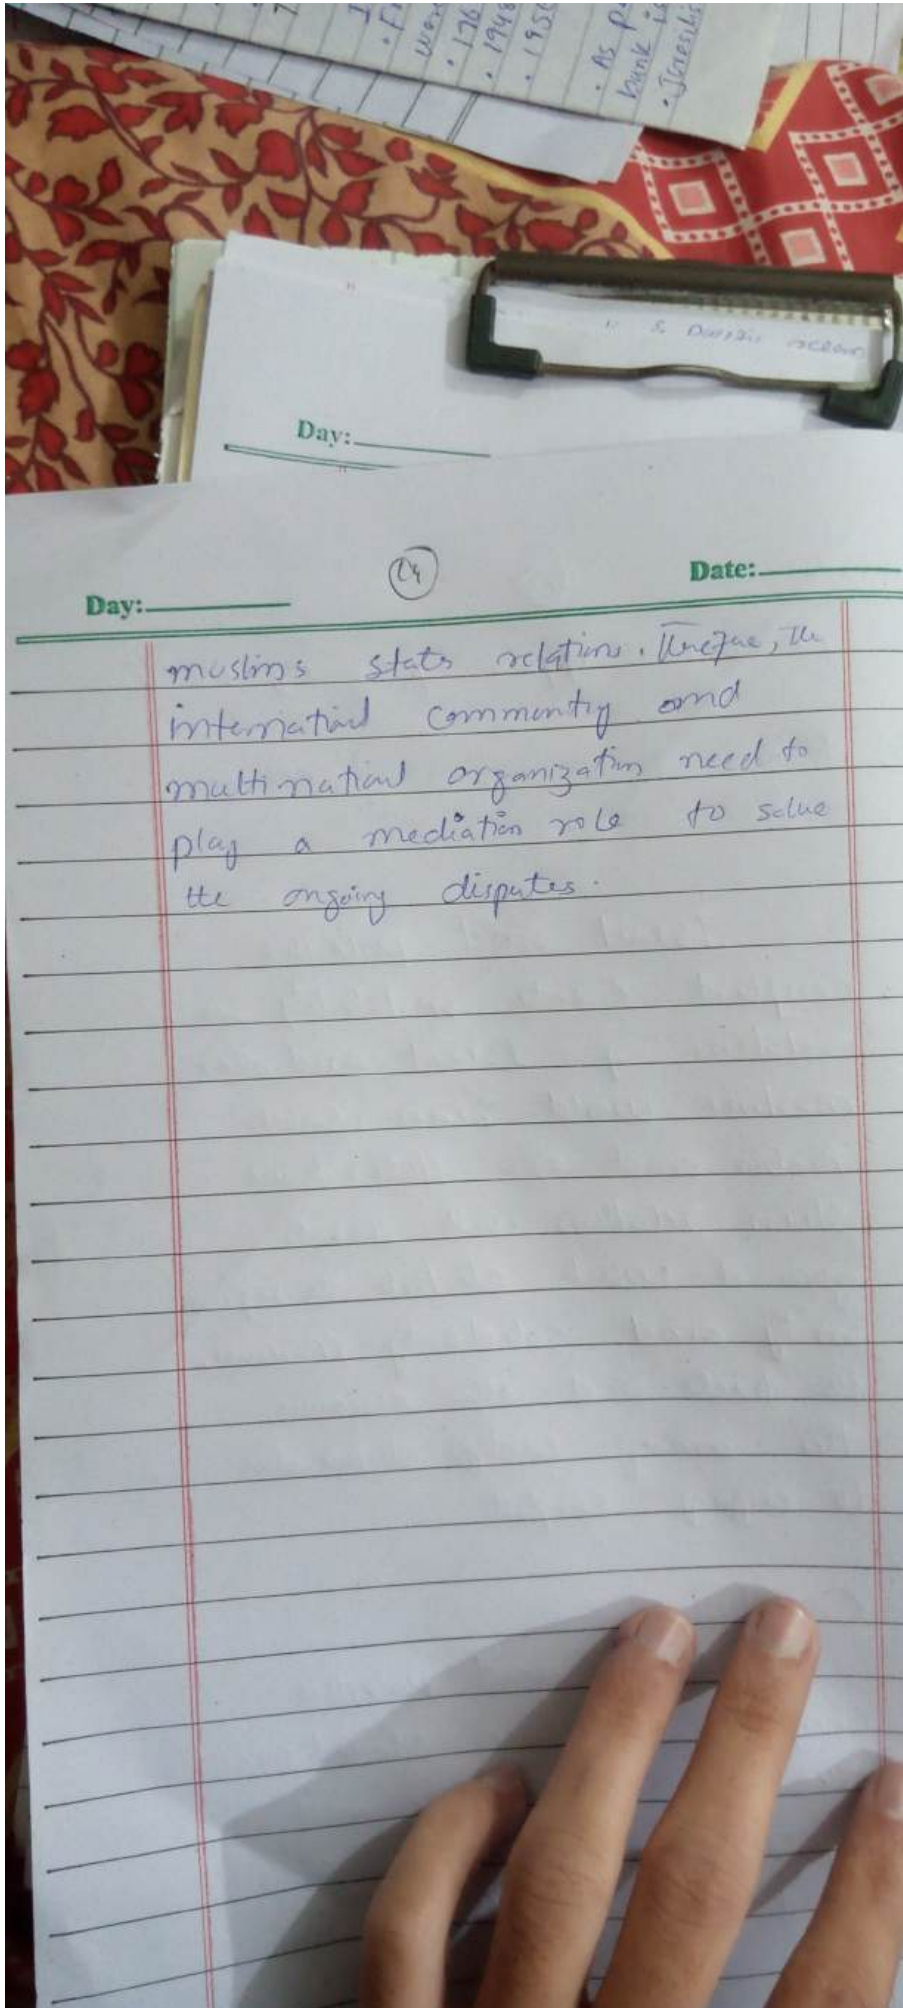 I
wes
. 176
. 1948
. 1950
. As p
bank is
Day:
24
Day:
Date:
muslims states relations. Therefore, the
international community and
multinational organization need to
play a mediation role to solve
the ongoing disputes.